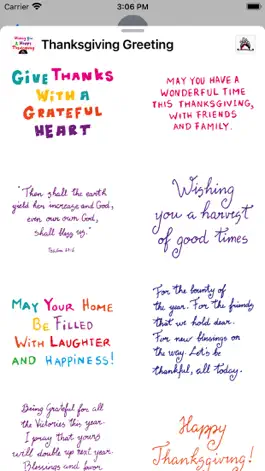 Carrier
3:06 PM
Wishing You
A Happy
Thanksgiving
Thanksgiving Greeting
GIVE THANKS
WITH A
GRATEFUL
HEART
MAY YOU HAVE A
WONDERFUL TIME
THIS THANKSGIVING,
WITH FRIENDS
AND FAMILY.
"Then shall the earth
yield her increase and God,
even our own God,
shall bless us."
Wishing
you a harvest
of good times
MAY YOUR HOME
BE FILLED
WITH LAUGHTER
AND HAPPINESS!
For the bounty of
the year. For the friends
that we hold dear.
For new blessings on
the way. Let's be
thankful, all today.
Being Grateful for all
the Victories this year.
I pray that yours
will double up next year.
Blessings and favor
Happy
Thanksgiving!